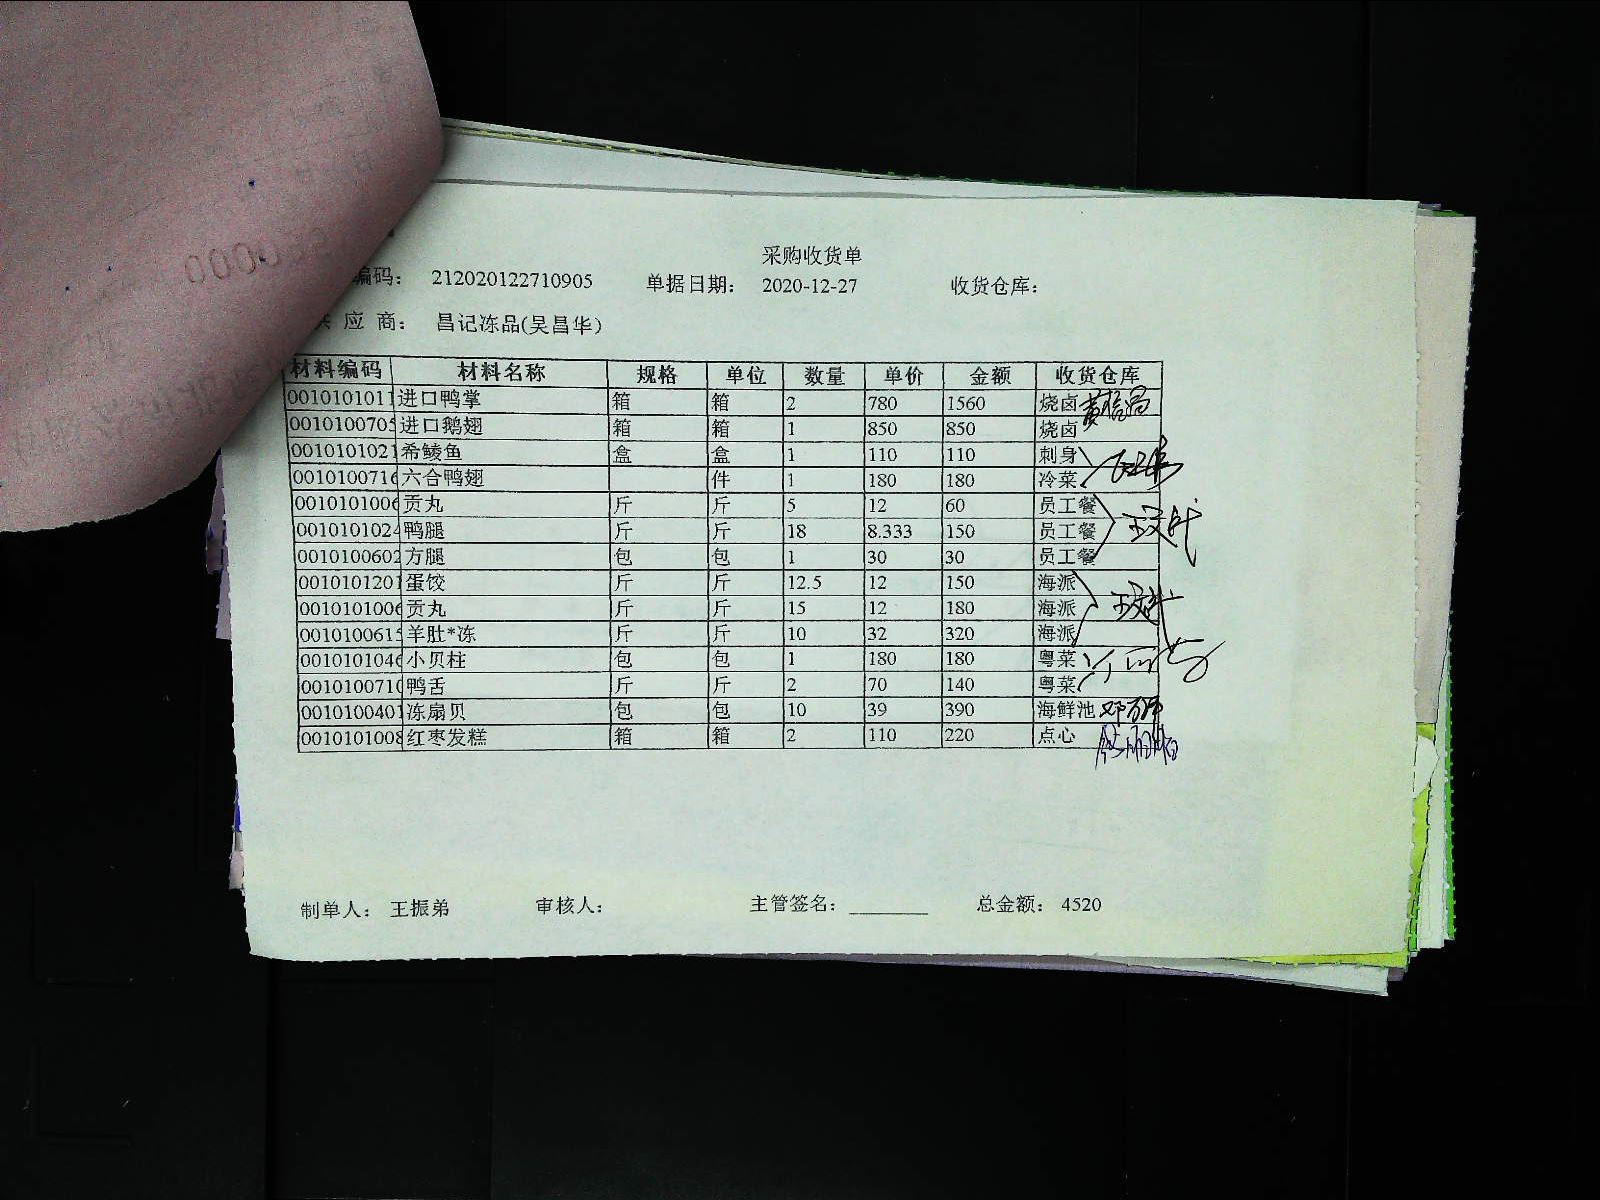 采购收货单
编码： 212020122710905 单据日期： 2020-12-27 收货仓库：
应 商： 昌记冻品(吴昌华)
材料编码 材料名称 规格 单位 数量 单价 金额 收货仓库
0010101011 进口鸭掌 箱 箱 2 780 1560 烧卤
0010100705 进口鹅翅 箱 箱 1 850 850 烧卤
0010101021 希鲮鱼 盒 盒 1 110 110 刺身
0010100716 六合鸭翅 件 1 180 180 冷菜
0010101006 贡丸 斤 斤 5 12 60 员工餐
0010101024 鸭腿 斤 斤 18 8.333 150 员工餐
0010100602 方腿 包 包 1 30 30 员工餐
0010101201 蛋饺 斤 斤 12.5 12 150 海派
0010101006 贡丸 斤 斤 15 12 180 海派
0010100615 羊肚*冻 斤 斤 10 32 320 海派
0010101046 小贝柱 包 包 1 180 180 粤菜
0010100710 鸭舌 斤 斤 2 70 140 粤菜
0010100401 冻扇贝 包 包 10 39 390 海鲜池
0010101008 红枣发糕 箱 箱 2 110 220 点心
制单人： 王振弟 审核人： 主管签名： ________ 总金额： 4520